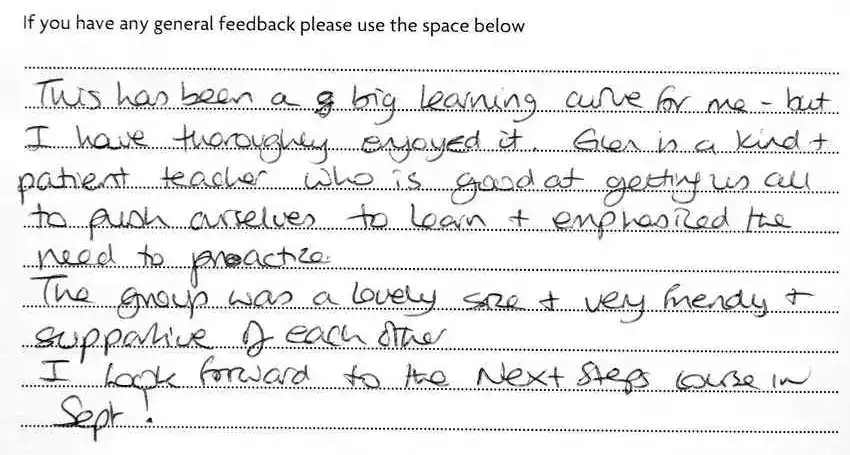 If you have any general feedback please use the space below
This has been a big learning curve for me - but
I have thoroughly enjoyed it. Glen is a kind +
patient teacher who is good at getting us all
to push ourselves to learn + emphasized the
need to practize.
The group was a lovely size + very friendly +
supportive of each other
I look forward to the Next Steps course in
Sept!